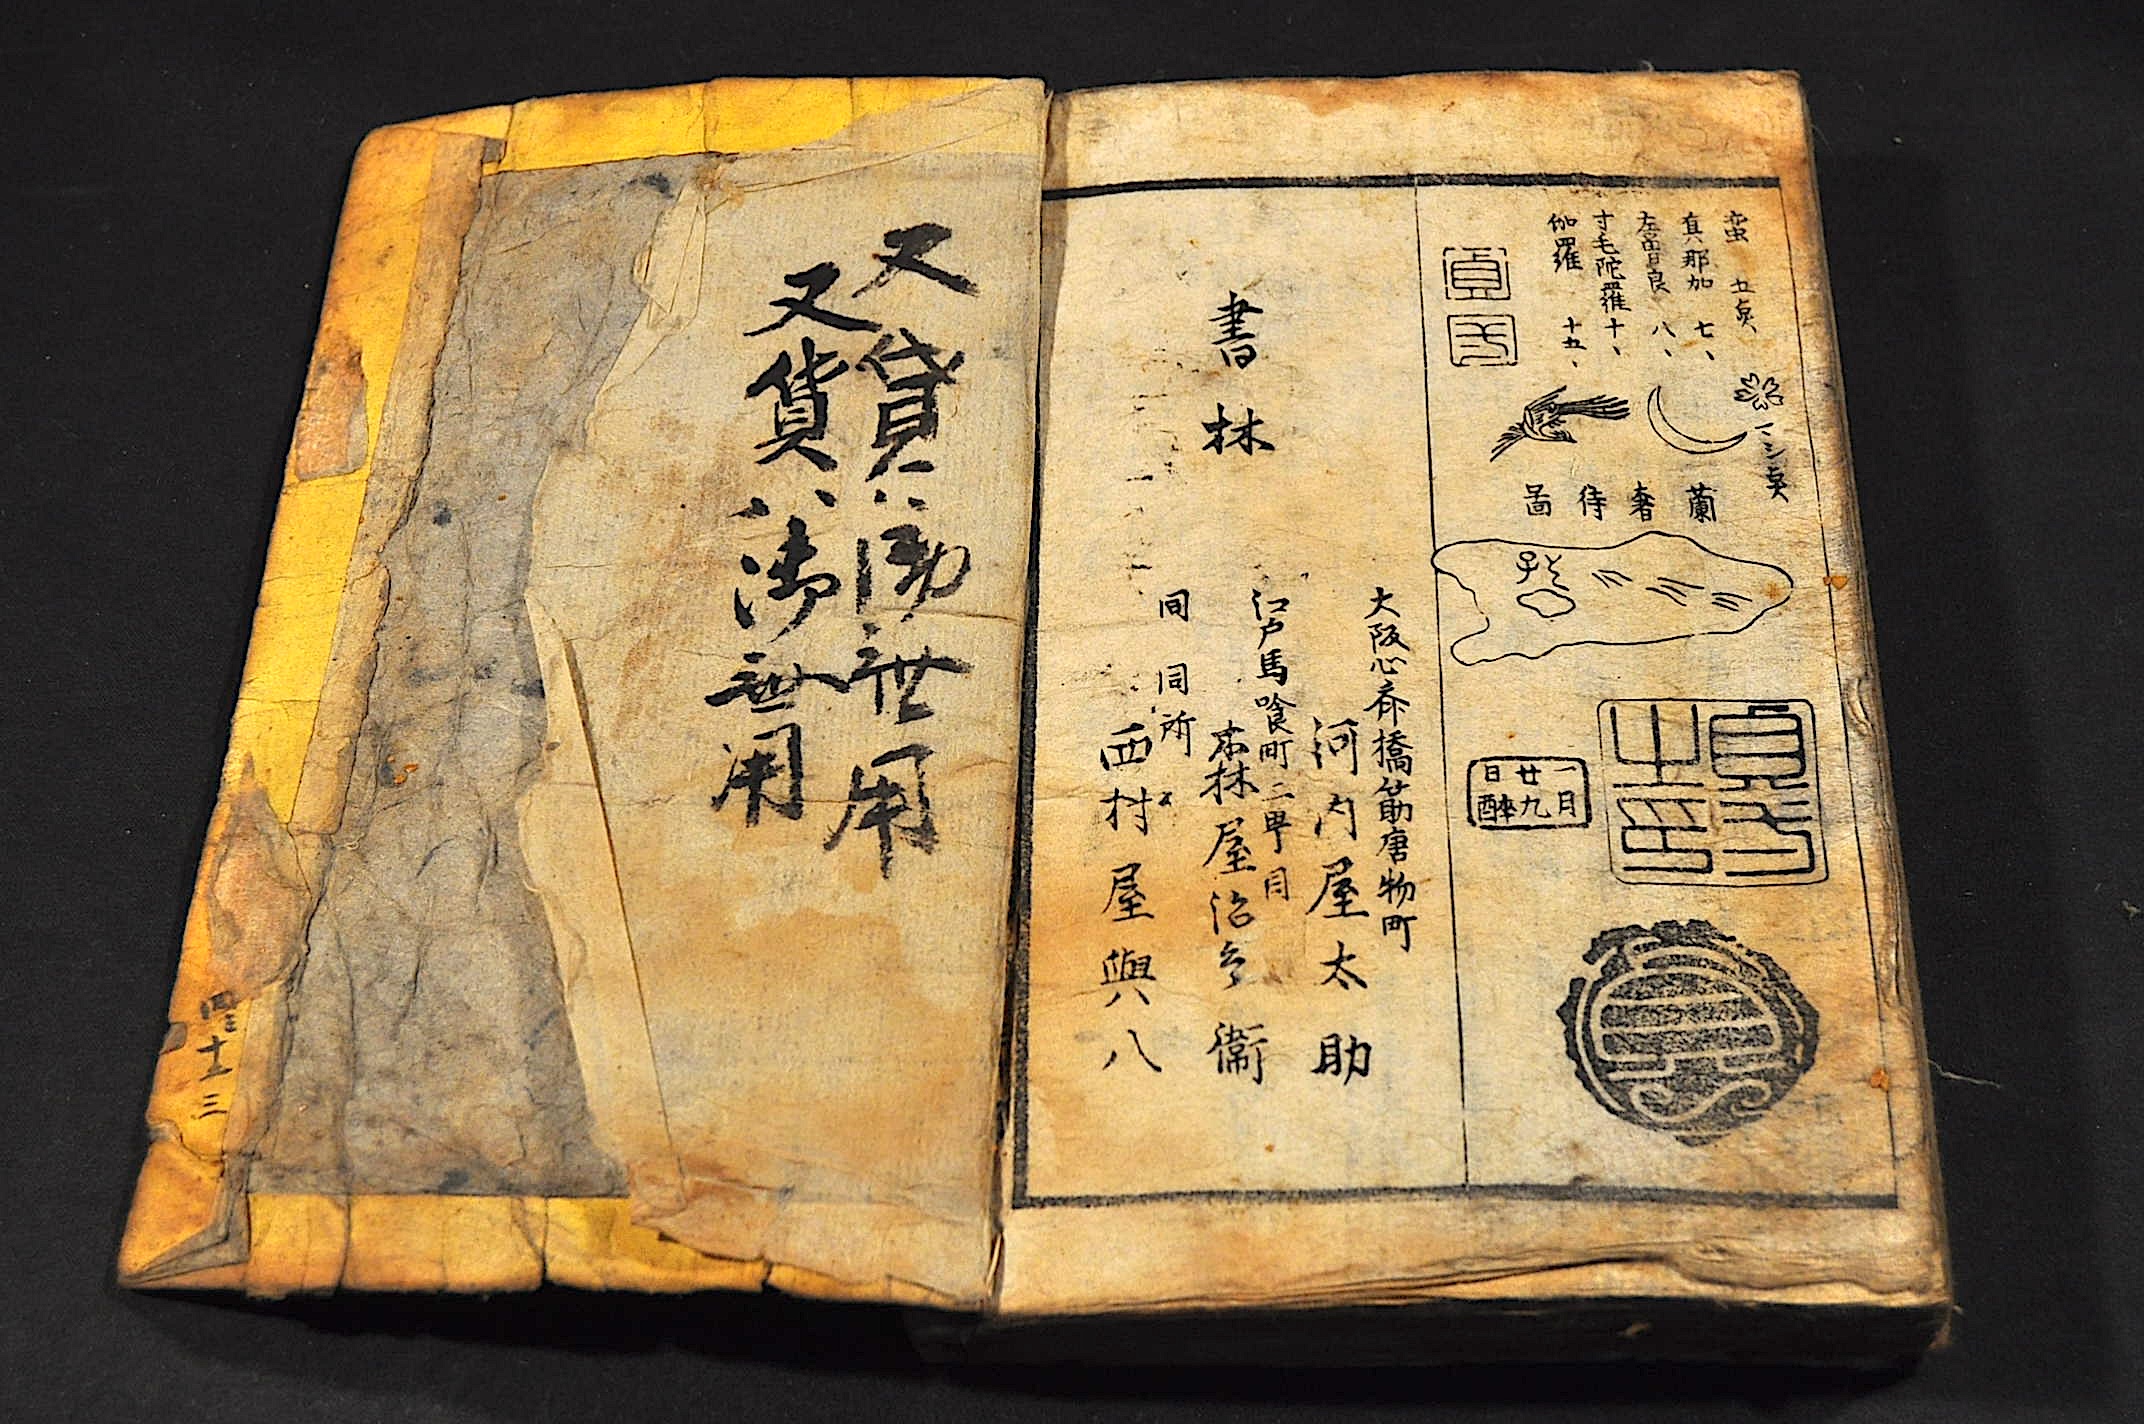 蛮 五貞、
真那加 七、
左曽良 八、
寸毛陀羅 十、
伽羅 十五、
蘭奢待圖
貞
一月
廿九
日醉
大阪心斎橋筋唐物町
河内屋太助
江戸馬喰町二甼目
森屋治兵衛
同 同所
西村屋與八
書林
又貸ハ御無用
又貸ハ御無用
四十三